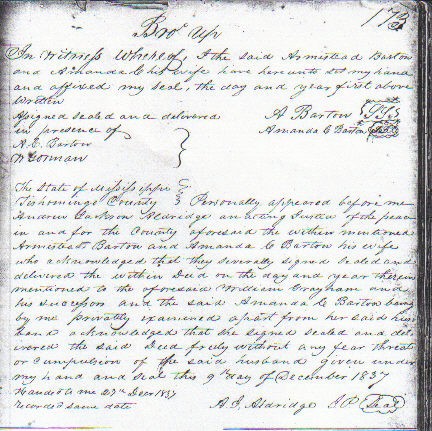 173
Bro' Up
In Witness Whereof, I the said Armistead Barton
and Amanda C his Wife have hereunto set my hand
and affixed my seal, the day and year first above
written
signed sealed and delivered
in presence of
A Barton
Amanda C Barton Seal
A. C. Barton
The State of Mississippi
Tishomingo County Personally appeared before me
Andrew Jackson Aldridge an acting Justice of the peace
in and for the County aforesaid the within mentioned
Armistead Barton and Amanda C Barton his wife
who acknowledged that they severally signed sealed and
delivered the within Deed on the day and year therein
mentioned to the aforesaid William Grayham and
his successors and the said Amanda C Barton being
by me privately examined apart from her said hus
band acknowledged that she signed sealed and del
ivered the said Deed freely without any fear threat
or compulsion of the said husband given under
my hand and seal this 9th day of December 1837
Handed to me 27th Decr 1837
recorded same date
A. J. Aldridge J. P. Seal